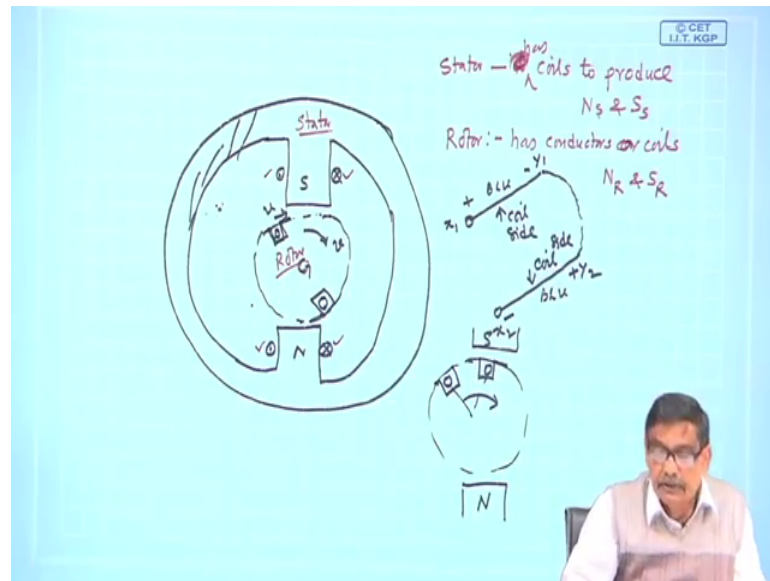 © CET
I.I.T. KGP
Stator – has coils to produce
N_S & S_S
Rotor:- has conductors or coils
N_R & S_R
Stator
S
v
v
Rotor
N
x₁
+
BLU
- Y₁
coil
side
coil
side
BLU
+Y₂
x₂
-
S
N